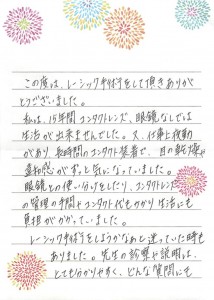 この度は、レーシック手術をして頂きありが
とうございました。
私は、15年間コンタクトレンズ、眼鏡なしでは
生活が出来ませんでした。又、仕事上夜勤
があり長時間のコンタクト装着で、目の乾燥や
違和感がずっと気になっていました。
眼鏡との使い分けをしたり、コンタクトレンズ
の管理の手間やコンタクト代もかかり生活にも
負担がかかっていました。
レーシック手術をしようかなぁと迷っていた時も
ありました。先生の診察や説明は、
とても分かりやすく、どんな質問にも